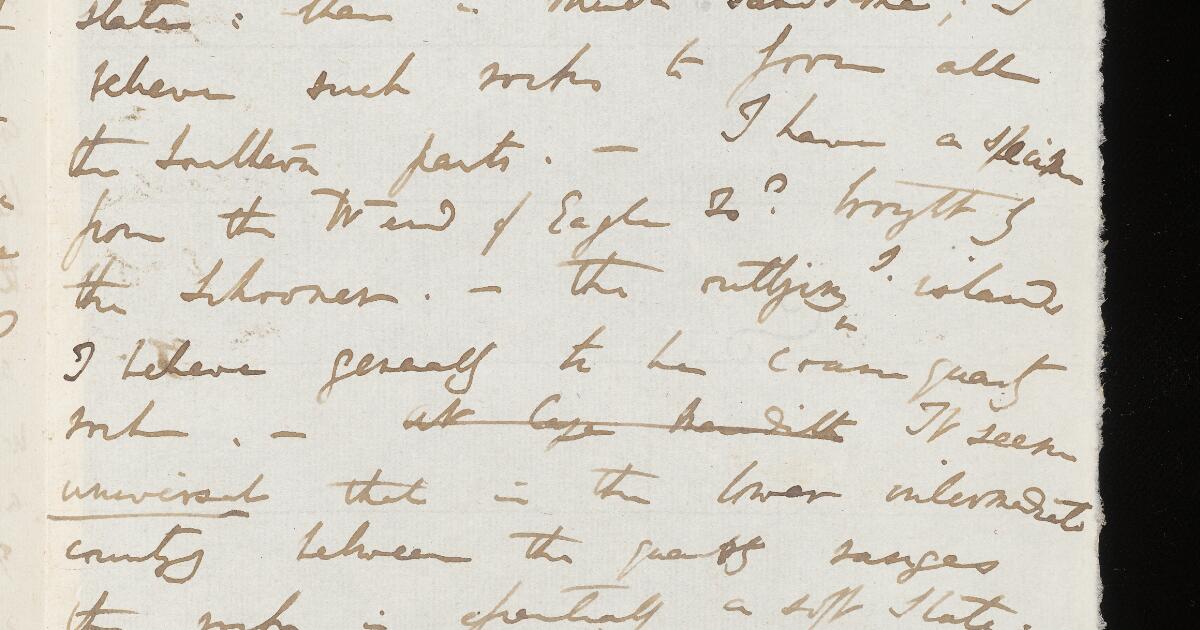 slate: there is much sandstone; I
believe such rocks to form all
the Southern parts. — I have a specim
from the W end of Eagle Isd? brought by
the Schooner. — the outlying Is. islands
I believe generally to be coarse quartz
rock. — at Cape Meredith It seems
universal that in the lower intermediate
country between the quartz ranges
the rocks is essentially a soft Slate.